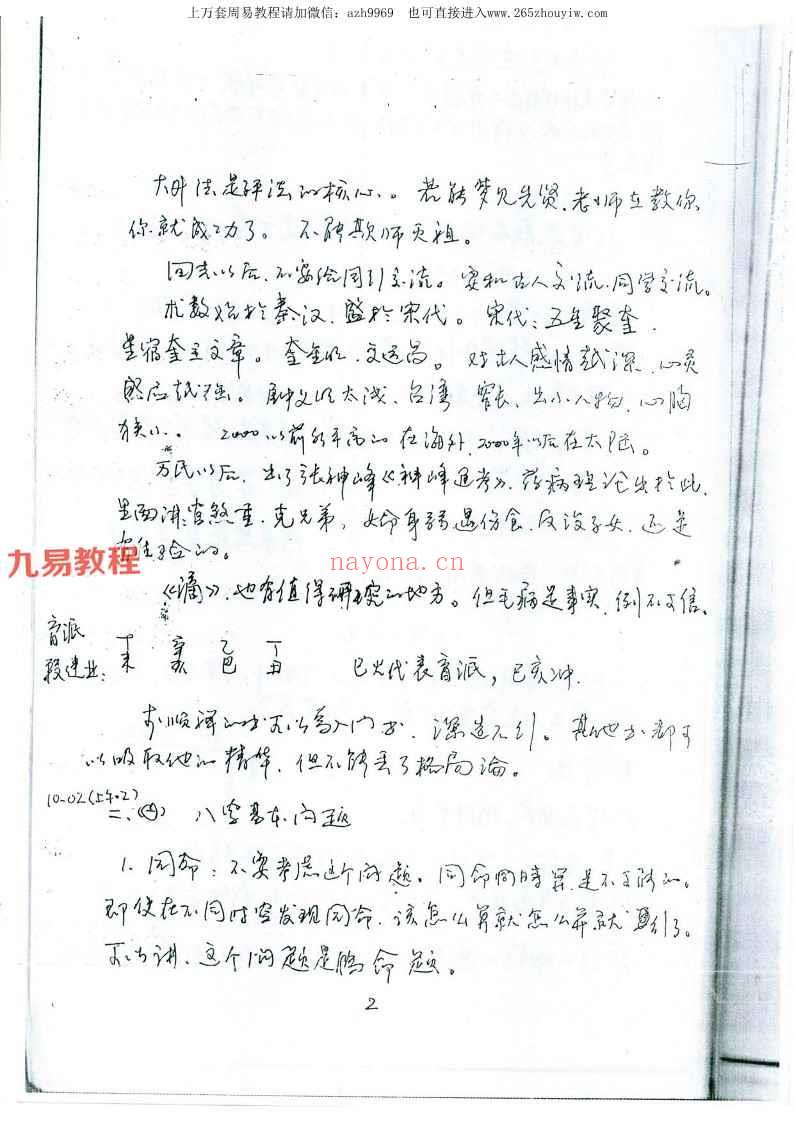 上万套周易教程请加微信: azh9969 也可直接进入www.265zhouyiw.com
法是評法的核心。若能梦见先贤、老师在教你
你就成功了。不能欺师灭祖。
回去以后,不要给同行交流。要和古人交流、同学交流。
术数始於秦汉,盛於宋代。宋代:五星聚奎,
星宿奎主文章。奎星明,文运昌。对古人感情越深,心灵
感应越强。太浅、台湾 出小人物,心胸
狭小。2000以前水平高的在海外,2000年以后在大陆。
万民以后,出了张神峰《神峰通考》,药病理论出於此,
里面讲官煞重,克兄弟,女命身弱遇伤食,反没子女,还是
的。
九易教程
nayona.cn
《滴》,也有值得研究的地方。但毛病是事实,例不可信。
盲派
段建业:
丁 辛 乙 丁
未 亥 巴 丑 巳火代表盲派,巳亥冲.
的书可以为入门书,深造不行。其他书都可
以吸取他的精华,但不能丢了格局论。
10-02(上午.2)
二、(四) 八字基本问题
1. 同命:不要考虑这个问题。同命同时算是不可能的。
即使在不同时空发现同命,该怎么算就怎么算就行了。
可以讲,这个问题是 命题。
2